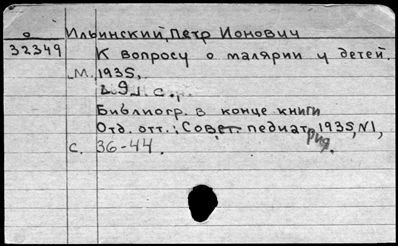 о Ильинский, Петр Ионович
32349 К вопросу о малярии у детей.
М., 1935,
9 с.,
Библиогр. в конце книги
Отд. отт.: Совет. педиатрия, 1935, N1,
с. 36-44.